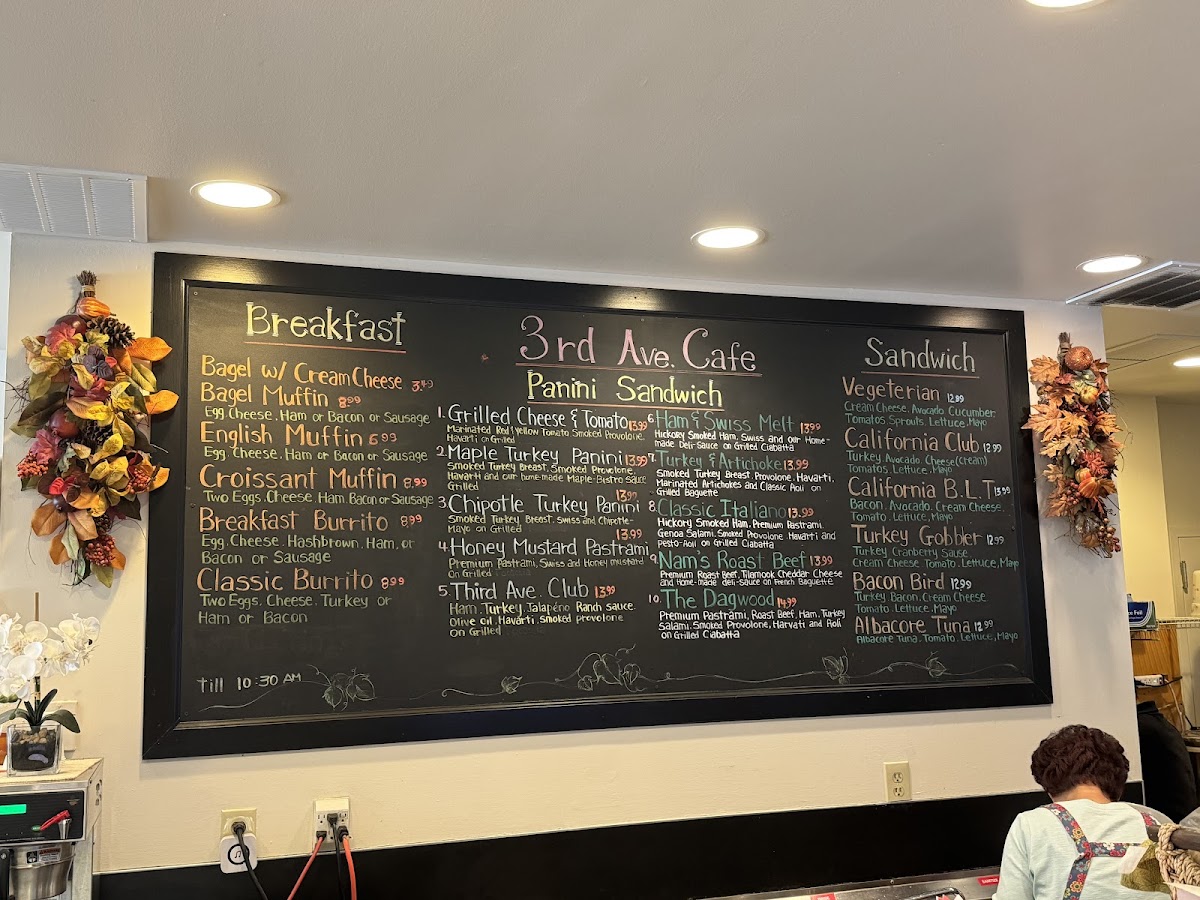 Breakfast
Bagel w/ Cream Cheese 3.49
Bagel Muffin 8.99
Egg, Cheese, Ham or Bacon or Sausage
English Muffin 6.99
Egg, Cheese, Ham or Bacon or Sausage
Croissant Muffin 8.99
Two Eggs, Cheese, Ham, Bacon or Sausage
Breakfast Burrito 8.99
Egg, Cheese, Hashbrown, Ham, or
Bacon or Sausage
Classic Burrito 8.99
Two Eggs, Cheese, Turkey or
Ham or Bacon
till 10:30 AM
3rd Ave. Cafe
Panini Sandwich
1. Grilled Cheese & Tomato 13.99
Marinated Red & yellow Tomato Smoked Provolone,
Havarti on Grilled
2. Maple Turkey Panini 13.99
Smoked Turkey Breast, Smoked Provolone,
Havarti and our home-made Maple-Bistro Sauce
Grilled
3. Chipotle Turkey Panini 13.99
Smoked Turkey Breast, Swiss and Chipotle-
Mayo on Grilled
4. Honey Mustard Pastrami 13.99
Premium Pastrami, Swiss and Honey mustard
on Grilled
5. Third Ave. Club 13.99
Ham, Turkey, Jalapéno Ranch sauce,
Olive oil, Havarti, Smoked provolone
on Grilled
6. Ham & Swiss Melt 13.99
Hickory Smoked Ham, Swiss and our Home-
made Deli-Sauce on Grilled Ciabatta
7. Turkey & Artichoke 13.99
Smoked Turkey Breast, Provolone, Havarti,
Marinated Artichokes and Classic Aoli on
Grilled Baguette
8. Classic Italiano 13.99
Hickory Smoked Ham, Premium Pastrami,
Genoa Salami, Smoked Provolone, Havarti and
Pesto-Aoli on Grilled Ciabatta
9. Nam's Roast Beef 13.99
Premium Roast Beef, Tillamook Cheddar Cheese
and Home-made deli-sauce on French Baguette
10. The Dagwood 14.99
Premium Pastrami, Roast Beef, Ham, Turkey
Salami, Smoked Provolone, Harvati and Aoli
on Grilled Ciabatta
Sandwich
Vegeterian 12.99
Cream Cheese, Avocado, Cucumber,
Tomatos, Sprouts, Lettuce, Mayo
California Club 12.99
Turkey, Avocado, Cheese (cream)
Tomatos, Lettuce, Mayo
California B.L.T 13.99
Bacon, Avocado, Cream Cheese,
Tomato, Lettuce, Mayo
Turkey Gobbler 12.99
Turkey, Cranberry Sause,
Cream Cheese, Tomato, Lettuce, Mayo
Bacon Bird 12.99
Turkey, Bacon, Cream Cheese
Tomato, Lettuce, Mayo
Albacore Tuna 12.99
Albacore Tuna, Tomato, Lettuce, Mayo